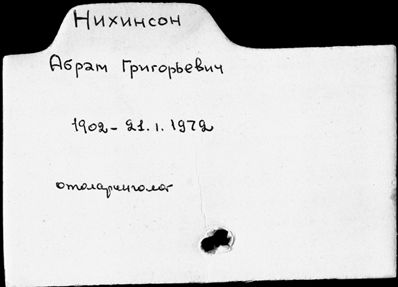 Нихинсон
Абрам Григорьевич
1902 - 21.1.1972
отоларинголог